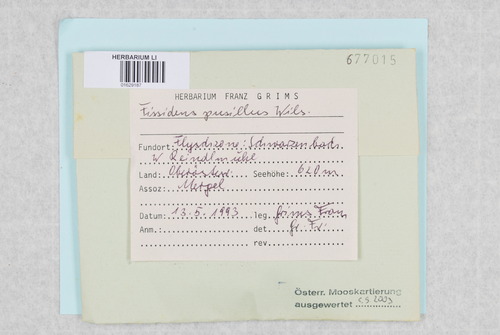 HERBARIUM LI
677015
HERBARIUM FRANZ GRIMS
Fissidens pusillus Wils.
Fundort: Flyschzone: Schwarzenbach
W. Reindlmühl
Land: Oberösterr. Seehöhe: 620 m
Assoz: Mergel
Datum: 13.5.1993 leg. Grims Franz
Anm.: det. Gr. Fr.
rev.
Österr. Mooskartierung
ausgewertet 2003